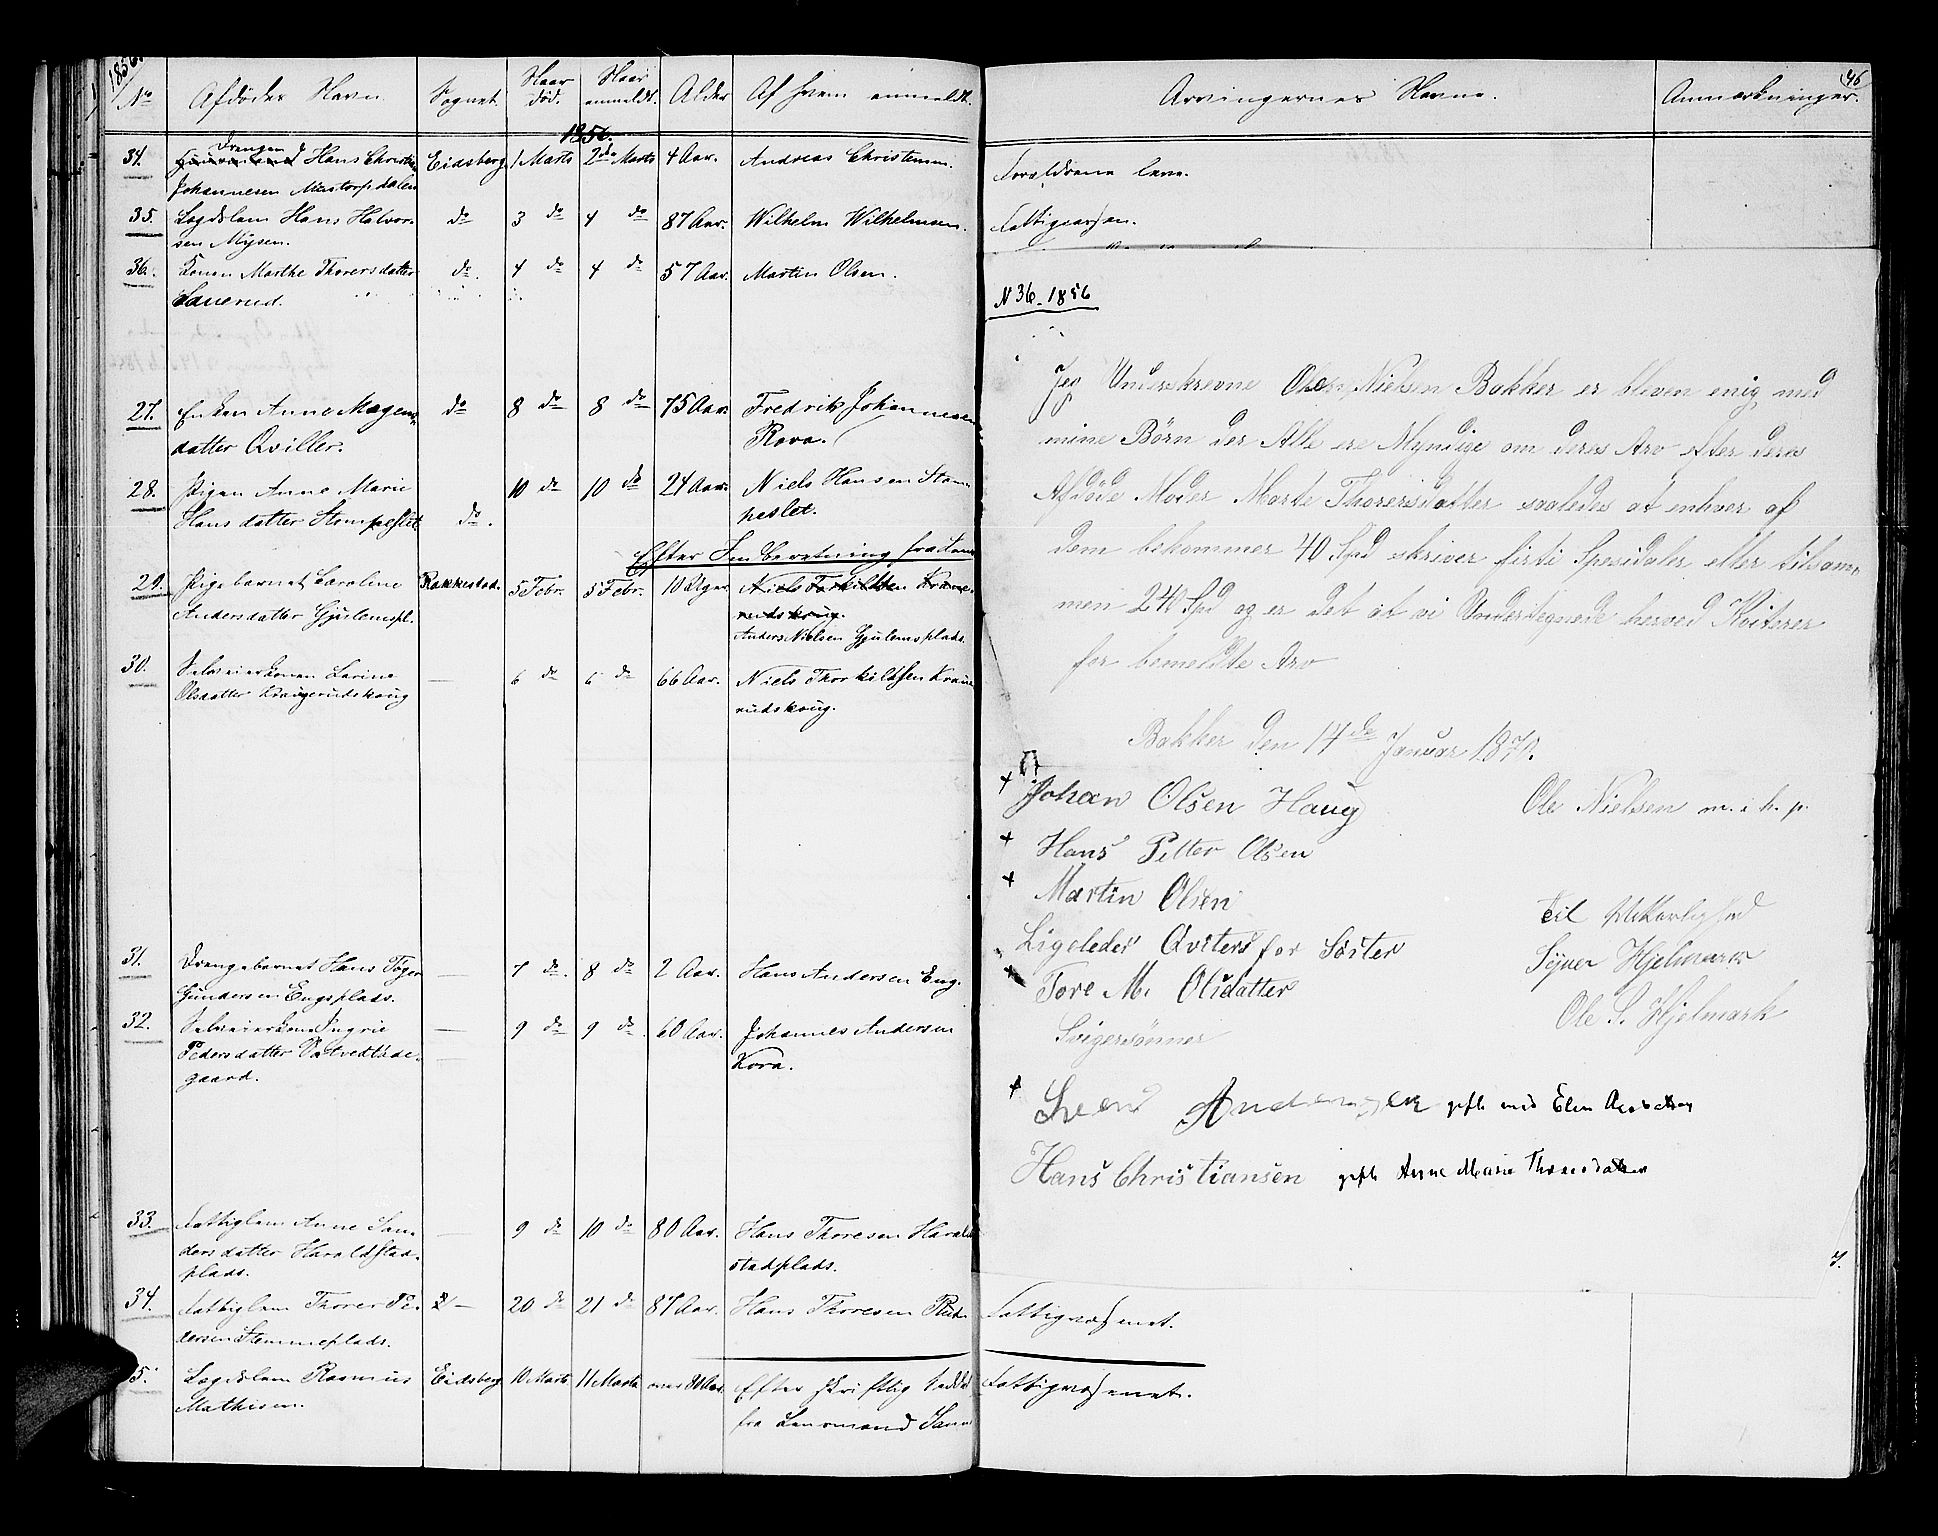 1856.
No Afdødes Navn. Sognet. Naar død. Naar anmeldt. Alder Af hvem anmeldt.
1856.
34. Drengen Hans Christian Eidsberg 1 Marts 2de Marts 4 Aar. Andreas Christensen.
Johannesen
35. Lægdslem Hans Halvor- do 3 do 4 do 87 Aar. Wilhelm Wilhelmsen.
sen Mysen.
36. Konen Marthe Thorersdatter do. 4 do 4 do 57 Aar. Martin Olsen.
27. Enken Anne Magens- do 8 do 8 do 75 Aar. Fredrik Johannesen
datter Qviller. Rova.
28. Pigen Anne Marie 10 do 10 do 24 Aar. Niels Hansen Stom-
Hansdatter do. peslet.
Efter Indberetning fra
29. Pigebarnet Caroline Rakkestad. 5 Febr. 5 Febr. 10 Uger Niels Torkildsen
Andersdatter Gjulemspl. Anders Nielsen Gjulemsplads.
30. Selveierkonen Larine — 6 do 6 do 66 Aar. Niels Thorkildsen
Olsdatter
31. Drengebarnet Hans — 7 do. 8 do 2 Aar. Hans Andersen Eng.
Gundersen Engsplads.
32. Selveierkone Ingrie — 9 do 9 do 60 Aar. Johannes Andersen
Pedersdatter — Kova.
gaard.
33. Fattiglem Anne — 9 do 10 do 80 Aar. Hans Thoresen Harald
datter Haraldstad- stadplads.
plads.
34. Fattiglem Thorer Pe- — 20 do 21 do 87 Aar. Hans Thoresen
dersen Stemmeplads.
35. Lægdslem Rasmus Eidsberg 10 Marts 11 Marts over 80 Aar. Efter skriftlig
Mathisen. fra Lensmand
46
Arvingernes Navne. Anmærkninger.
Forældrene leve.
Fattigvæsen.
N 36. 1856
Jeg Underskrevne Ole Nielsen Bakker er bleven enig med
mine Børn der Alle ere Myndige om deres Arv efter deres
Afdøde Moder Marte Thorersdatter saaledes at enhver af
dem bekommer 40 Spd skriver firti Spesidaler eller tilsam-
men 240 Spd og er det at vi Undertegnede herved Kviterer
for bemeldte Arv
Bakker den 14de Januar 1870.
+ Johan Olsen Haug Ole Nielsen m. i. h. p.
+ Hans Petter Olsen
+ Martin Olsen Til Vitterlighed
Ligeledes Qviters for Søster Syver Hjelmark
+ Tore M. Olsdatter Ole S. Hjelmark
Svigersønner
+ Svend Andersen gift med Elen
Hans Christiansen gift Anne Marie
Fattigvæsenet.
Fattigvæsenet.